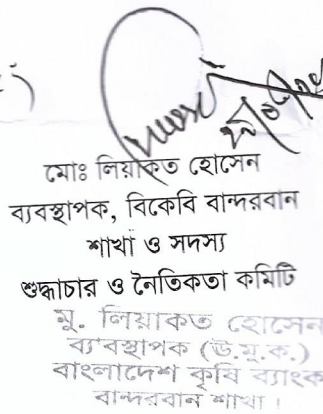 মোঃ লিয়াকত হোসেন
ব্যবস্থাপক, বিকেবি বান্দরবান
শাখা ও সদস্য
শুদ্ধাচার ও নৈতিকতা কমিটি
মু. লিয়াকত হোসেন
ব্যবস্থাপক (উ.মু.ক.)
বাংলাদেশ কৃষি ব্যাংক
বান্দরবান শাখা।